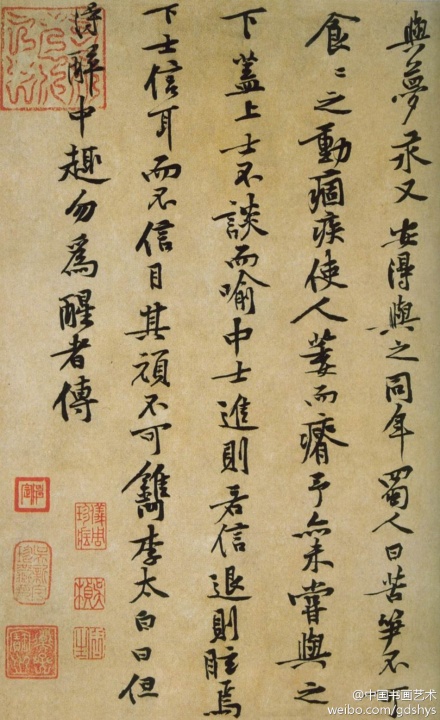 與夢永又安得與之同年蜀人曰苦笋不可
食〻之動痼疾使人萎而瘠予亦未嘗與之
下蓋上士不談而喻中士進則若信退則眩焉
下士信耳而不信目其頑不可鐫李太白曰但
得醉中趣勿為醒者傳
@中国书画艺术
weibo.com/gdshys